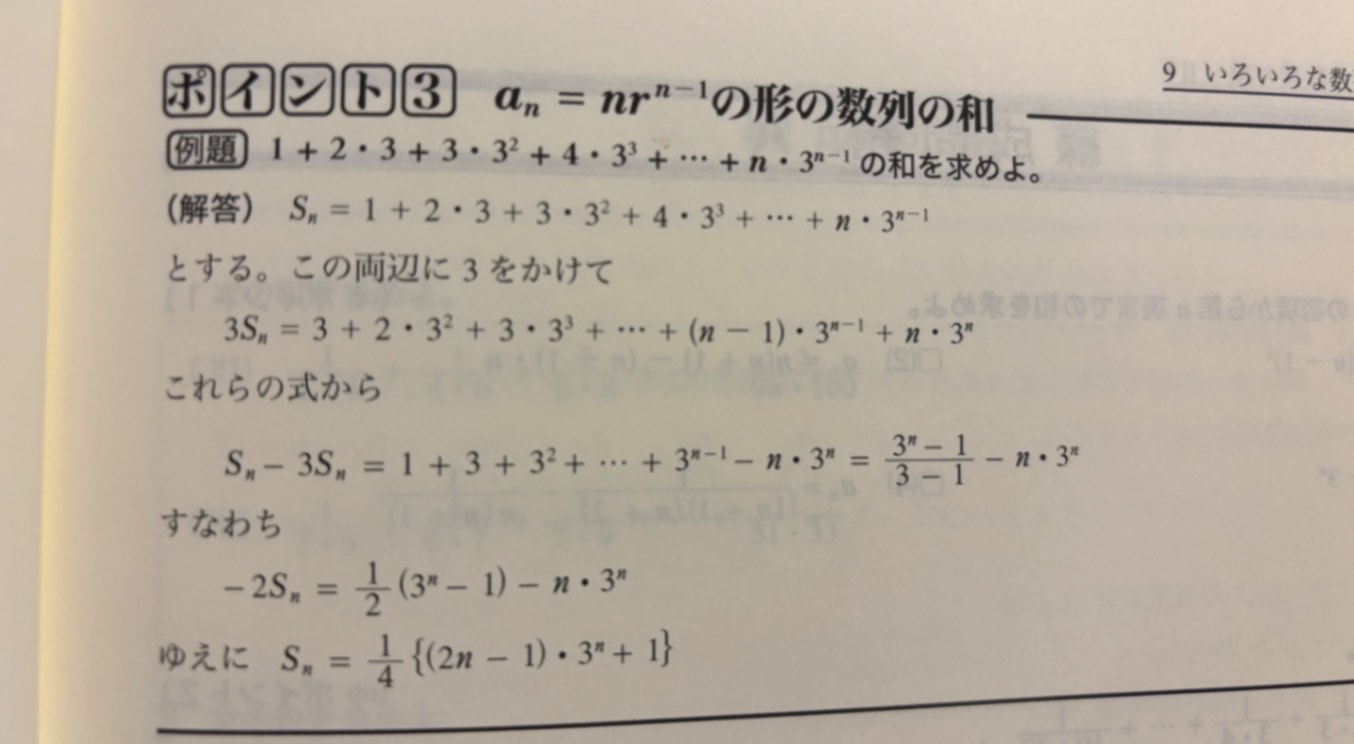 9 いろいろな数
ポイント3 aₙ = nrⁿ⁻¹の形の数列の和
例題 1 + 2・3 + 3・3² + 4・3³ + … + n・3ⁿ⁻¹ の和を求めよ。
(解答) Sₙ = 1 + 2・3 + 3・3² + 4・3³ + … + n・3ⁿ⁻¹
とする。この両辺に 3 をかけて
3Sₙ = 3 + 2・3² + 3・3³ + … + (n − 1)・3ⁿ⁻¹ + n・3ⁿ
これらの式から
Sₙ − 3Sₙ = 1 + 3 + 3² + … + 3ⁿ⁻¹ − n・3ⁿ = (3ⁿ − 1)/(3 − 1) − n・3ⁿ
すなわち
−2Sₙ = 1/2 (3ⁿ − 1) − n・3ⁿ
ゆえに Sₙ = 1/4 {(2n − 1)・3ⁿ + 1}